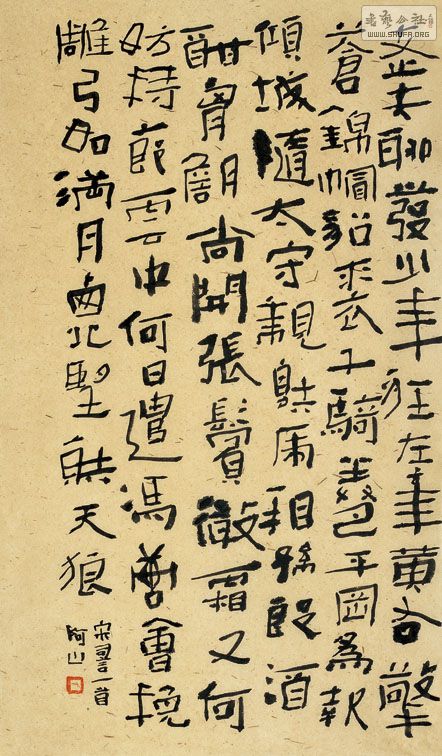 老夫聊發少年狂左牽黃右擎
蒼錦帽貂裘千騎卷平岡為報
傾城隨太守親射虎看孫郎酒
酣胸膽尚開張鬢微霜又何
妨持節雲中何日遣馮唐會挽
雕弓如滿月西北望射天狼
宋詞一首
阿山
书法公社
WWW.SHUFA.ORG